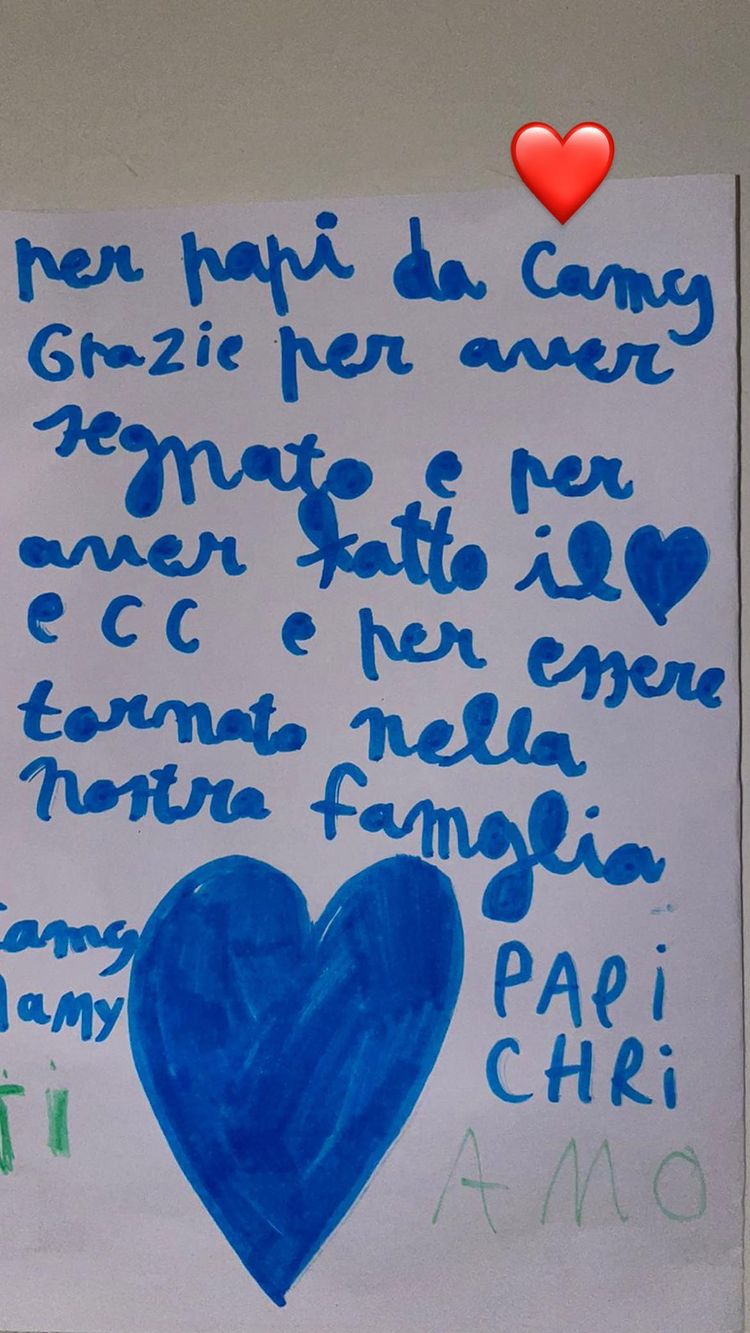 per papi da Camy
Grazie per aver
segnato e per
aver fatto il
ecc e per essere
tornato nella
nostra famglia
Camy
Mamy
PAPi
CHRi
Ti
AMO